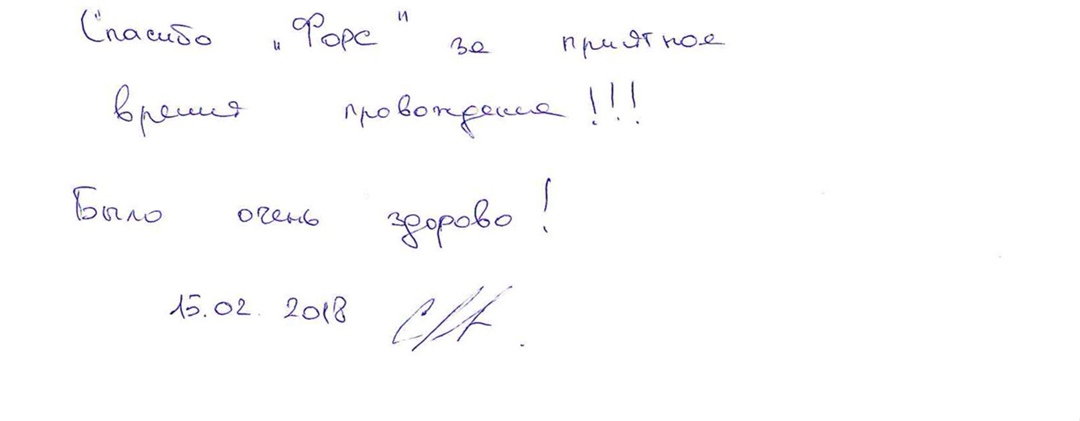 Спасибо „Форс" за приятное
время провождение!!!
Было очень здорово!
15.02.2018